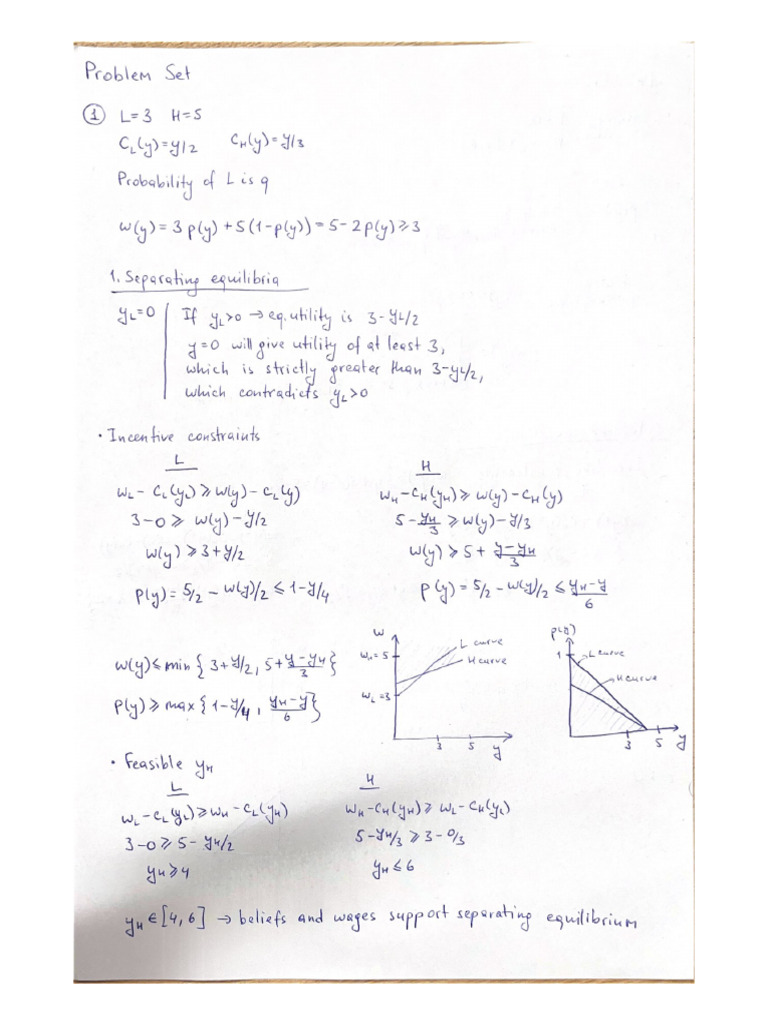 Problem Set
① L=3 H=5
C_L(y)=y/2 C_H(y)=y/3
Probability of L is q
w(y)=3p(y)+5(1-p(y))=5-2p(y)≥3
1. Separating equilibria
y_L=0 | If y_L>0 → eq. utility is 3-y_L/2
y=0 will give utility of at least 3,
which is strictly greater than 3-y_L/2,
which contradicts y_L>0
• Incentive constraints
L
w_L-C_L(y_L)≥w(y)-C_L(y)
3-0≥ w(y)-y/2
w(y)≥3+y/2
p(y)=5/2-w(y)/2≤1-y/4
H
w_H-C_H(y_H)≥w(y)-C_H(y)
5-y_H/3≥w(y)-y/3
w(y)≥5+(y-y_H)/3
p(y)=5/2-w(y)/2≤(y_H-y)/6
w(y)≤min{3+y/2, 5+(y-y_H)/3}
p(y)≥max{1-y/4, (y_H-y)/6}
w
w_H=5
w_L=3
L curve
H curve
3 5 y
p(y)
1
L curve
H curve
3 5 y
• Feasible y_H
L
w_L-C_L(y_L)≥w_H-C_L(y_H)
3-0≥5-y_H/2
y_H≥4
H
w_H-C_H(y_H)≥w_L-C_H(y_L)
5-y_H/3≥3-0/3
y_H≤6
y_H∈[4,6] → beliefs and wages support separating equilibrium